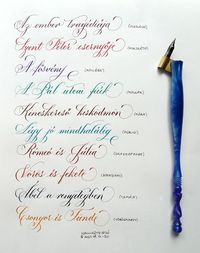 Az ember tragédiája (MADÁCH)
Szent Péter esernyője (MIKSZÁTH)
A fösvény (MOLIÈRE)
A Pál utcai fiúk (MOLNÁR)
Kincskereső kisködmön (MÓRA)
Légy jó mindhalálig (MÓRICZ)
Rómeó és Júlia (SHAKESPEARE)
Vörös és fekete (STENDHAL)
Ábel a rengetegben (TAMÁSI)
Csongor és Tünde (VÖRÖSMARTY)